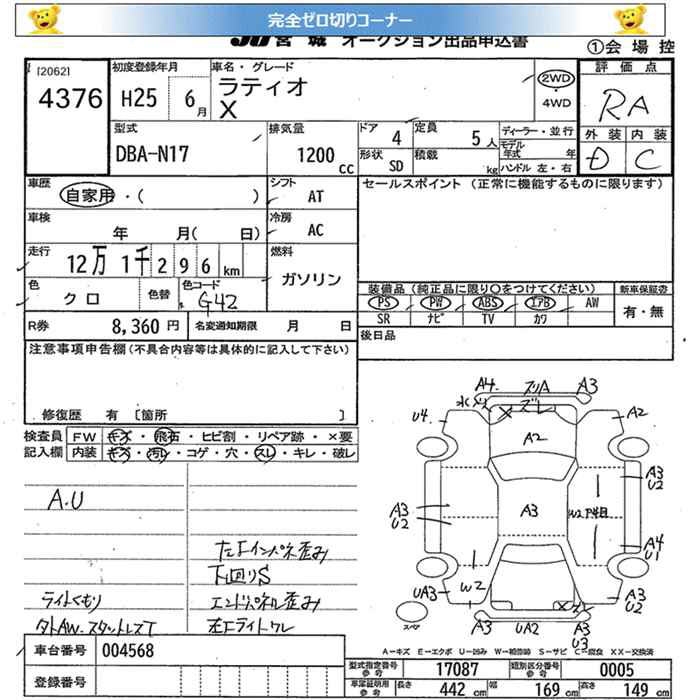 完全ゼロ切りコーナー
JU 宮 城 オークション出品申込書
①会 場 控
[2062]
4376
初度登録年月
H25 6月
車名・グレード
ラティオ
X
2WD
・
4WD
評 価 点
RA
外 装 内 装
D C
型式
DBA-N17
排気量
1200 cc
ドア 4
定員 5人
形状 SD
積載 kg
ディーラー・並行
モデル年式 年
ハンドル 左・右
車歴
自家用・( )
シフト
AT
車検
年 月( 日)
冷房
AC
走行
12万1千296km
燃料
ガソリン
色
クロ
色替
色コード
G42
R券 8,360 円
名変通知期限 月 日
セールスポイント (正常に機能するものに限ります)
装備品 (純正品に限り○をつけてください)
PS PW ABS エアB AW
SR ナビ TV カワ
新車保証書
有・無
後日品
注意事項申告欄(不具合内容等は具体的に記入して下さい)
修復歴 有 [箇所 ]
検査員
記入欄
FW キズ・飛石・ヒビ割・リペア跡・×要
内装 キズ・汚れ・コゲ・穴・スレ・キレ・破レ
A.U
下回りS
ライトくもり
エンドパネル歪み
車台番号 004568
登録番号
A4 A3
ズレ
U4 A2
A2
A3
U2
A3
U2
A3
W2
A4
U1
W2
UA3
A3
U2
スペア
A3 UA2 A3
U3
A-キズ E-エクボ U-凹み W-補修跡 S-サビ C-腐食 XX-交換済
型式指定番号
参考
17087
類別区分番号
参考
0005
車庫証明用
参考
長さ 442 cm
幅 169 cm
高さ 149 cm